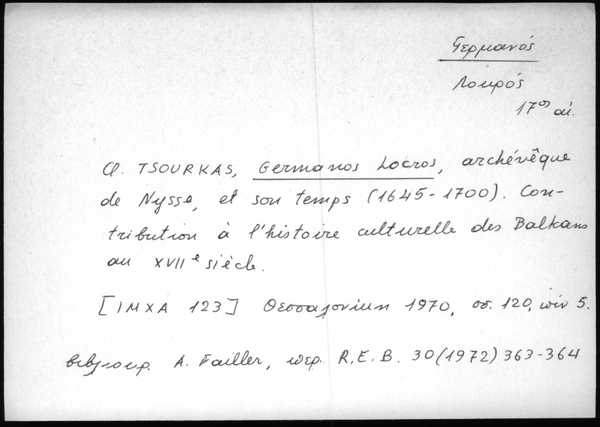 Γερμανός
Λοκρός
17ος αἰ.
Cl. TSOURKAS, Germanos Locros, archévêque
de Nysse, et son temps (1645-1700). Con-
tribution à l'histoire culturelle des Balkans
au XVIIe siècle.
[ΙΜΧΑ 123] Θεσσαλονίκη 1970, σσ. 120, πίν 5.
βιβλιοκρ. A. Failler, περ. R.E.B. 30 (1972) 363-364